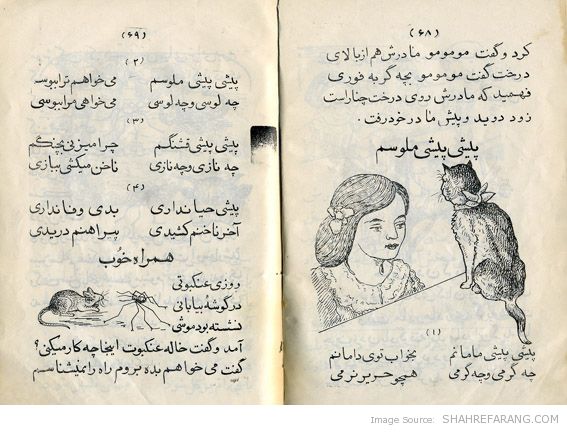 (۶۸)
کرد و گفت مومومو مادرش هم از بالای
درخت گفت مومومو بچه گربه فوری
فهمید که مادرش روی درخت چنار است
زود دوید و پیش مادر خود رفت.
پیشی پیشی ملوسم
(۱)
پیشی پیشی مامانم بخواب توی دامانم
چه گرمی و چه گرمی همچو حریر نرمی
(۶۹)
(۲)
پیشی پیشی ملوسم می خواهم ترا ببوسم
چه لوسی و چه لوسی می خواهی مرا ببوسی
(۳)
پیشی پیشی قشنگم چرا میزنی بچنگم
چه نازی و چه نازی ناخن میکشی ببازی
(۴)
پیشی حیا نداری بدی وفا نداری
آخر ناخنم کشیدی پیراهنم دریدی
همراه خوب
روزی عنکبوتی
در گوشهٔ بیابانی
نشسته بود موشی
آمد و گفت خاله عنکبوت اینجا چه کار میکنی؟
گفت می خواهم بده بروم راه را نمیشناسم
Image Source: SHAHREFARANG.COM